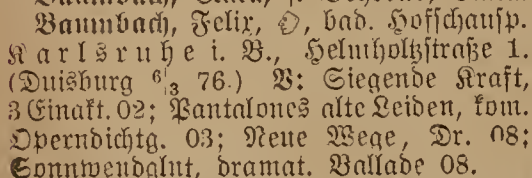 Baumbach, Felix, bad. Hofschausp.
Karlsruhe i. B., Helmholtzstraße 1.
(Duisburg 6/3 76.) V: Siegende Kraft,
3 Einakt. 02; Pantalones alte Leiden, kom.
Operndichtg. 03; Neue Wege, Dr. 08;
Sonnwendglut, dramat. Ballade 08.